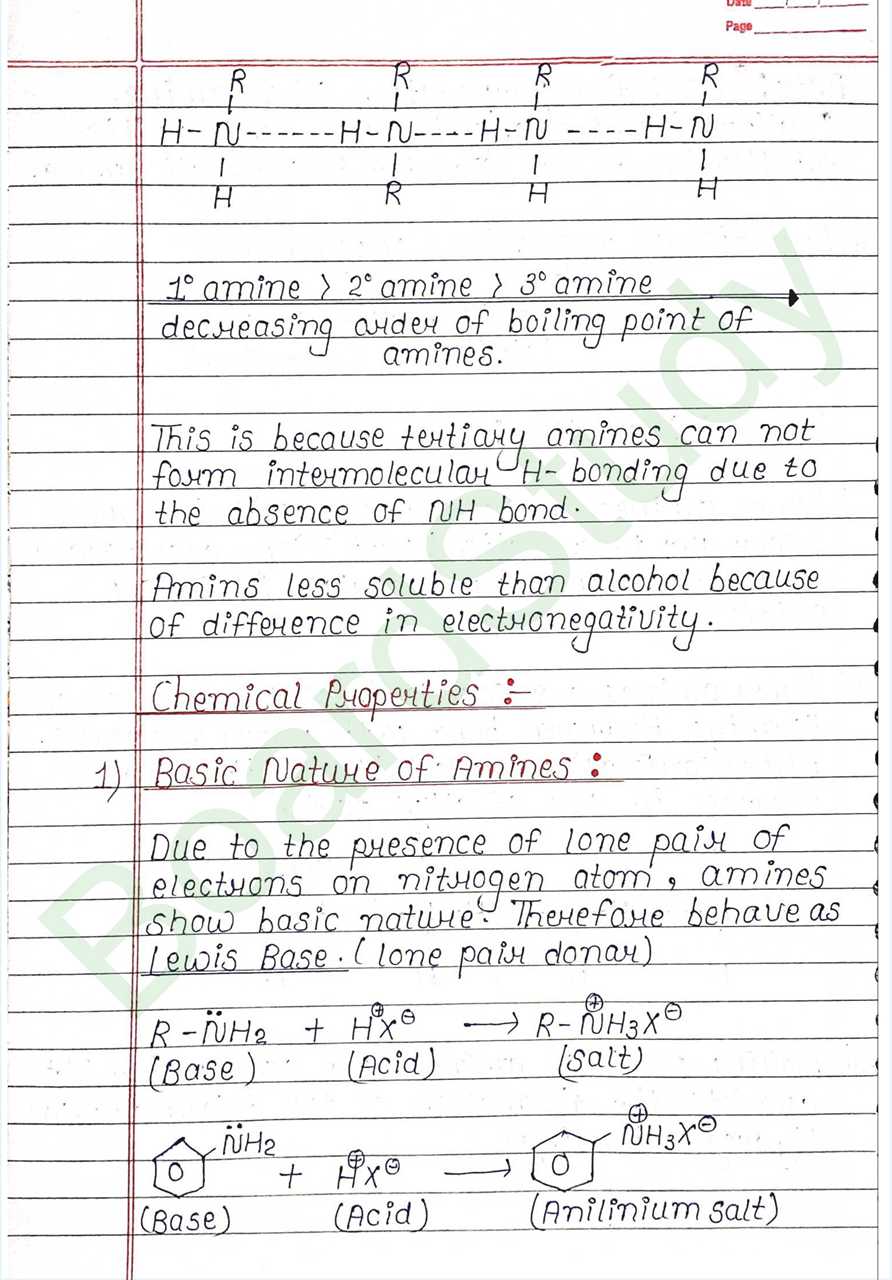 Date
Page
R R R R
H-N------H-N----H-N ----H-N
H R H H
1° amine > 2° amine > 3° amine
decreasing order of boiling point of
amines.
This is because tertiary amines can not
form intermolecular H- bonding due to
the absence of NH bond.
Amins less soluble than alcohol because
of difference in electronegativity.
Chemical Properties :-
1) Basic Nature of Amines :
Due to the presence of lone pair of
electrons on nitrogen atom, amines
show basic nature. Therefore behave as
Lewis Base. (lone pair donar)
R-N̈H2 + H⊕X⊖ → R-N⊕H3X⊖
(Base) (Acid) (Salt)
N̈H2 + H⊕X⊖ → N⊕H3X⊖
(Base) (Acid) (Anilinium salt)
BoardStudy